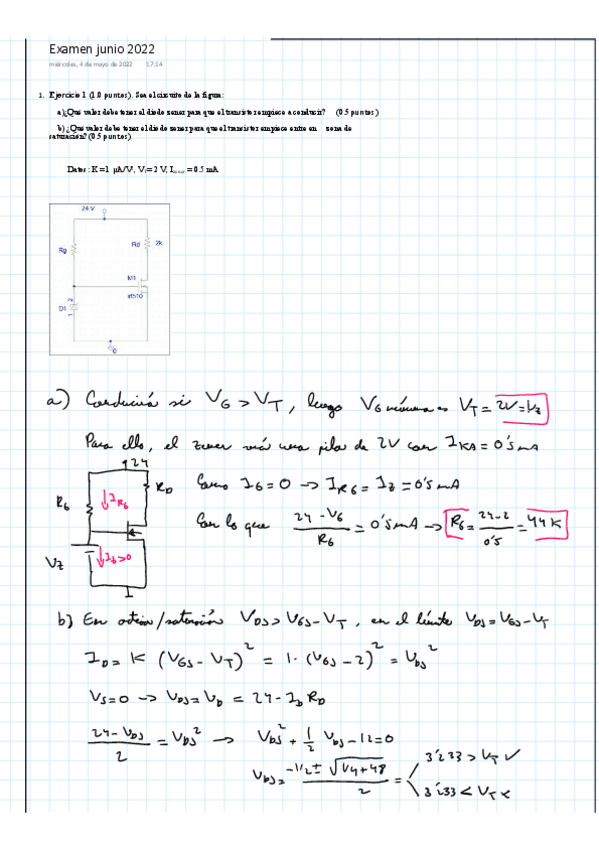 Examen junio 2022
miércoles, 4 de mayo de 2022 17:14
1. Ejercicio 1 (1.0 puntos). Sea el circuito de la figura:
a)¿Qué valor debe tener el diodo zener para que el transistor empiece a conducir? (0.5 puntos)
b)¿Qué valor debe tener el diodo zener para que el transistor empiece entre en zona de
saturación? (0.5 puntos)
Datos: K=1 µA/V, V = 2 V, I = 0.5 mA
24 V
Rg
Rd 2k
M1
irf510
D1
0
a) Conducirá si VG > VT, luego VG mínima es VT = 2V = Vz
Para ello, el zener será una pila de 2V con IKA = 0's mA
24
RG
IRG
RD
Vz
Como IG = 0 → IRG = Iz = 0's mA
Con lo que (24 - VG)/RG = 0's mA → RG = (24-2)/0's = 44K
b) En activa/saturación VDS > VGS - VT, en el límite VDS = VGS - VT
ID = K (VGS - VT)² = 1. (VGS - 2)² = VDS²
VS=0 → VDS = VD = 24 - ID RD
(24 - VDS)/2 = VDS² → VDS² + 1/2 VDS - 12 = 0
VDS = (-1/2 ± √(1/4 + 48))/2 =
3'233 > VT ✓
3'233 < VT ×